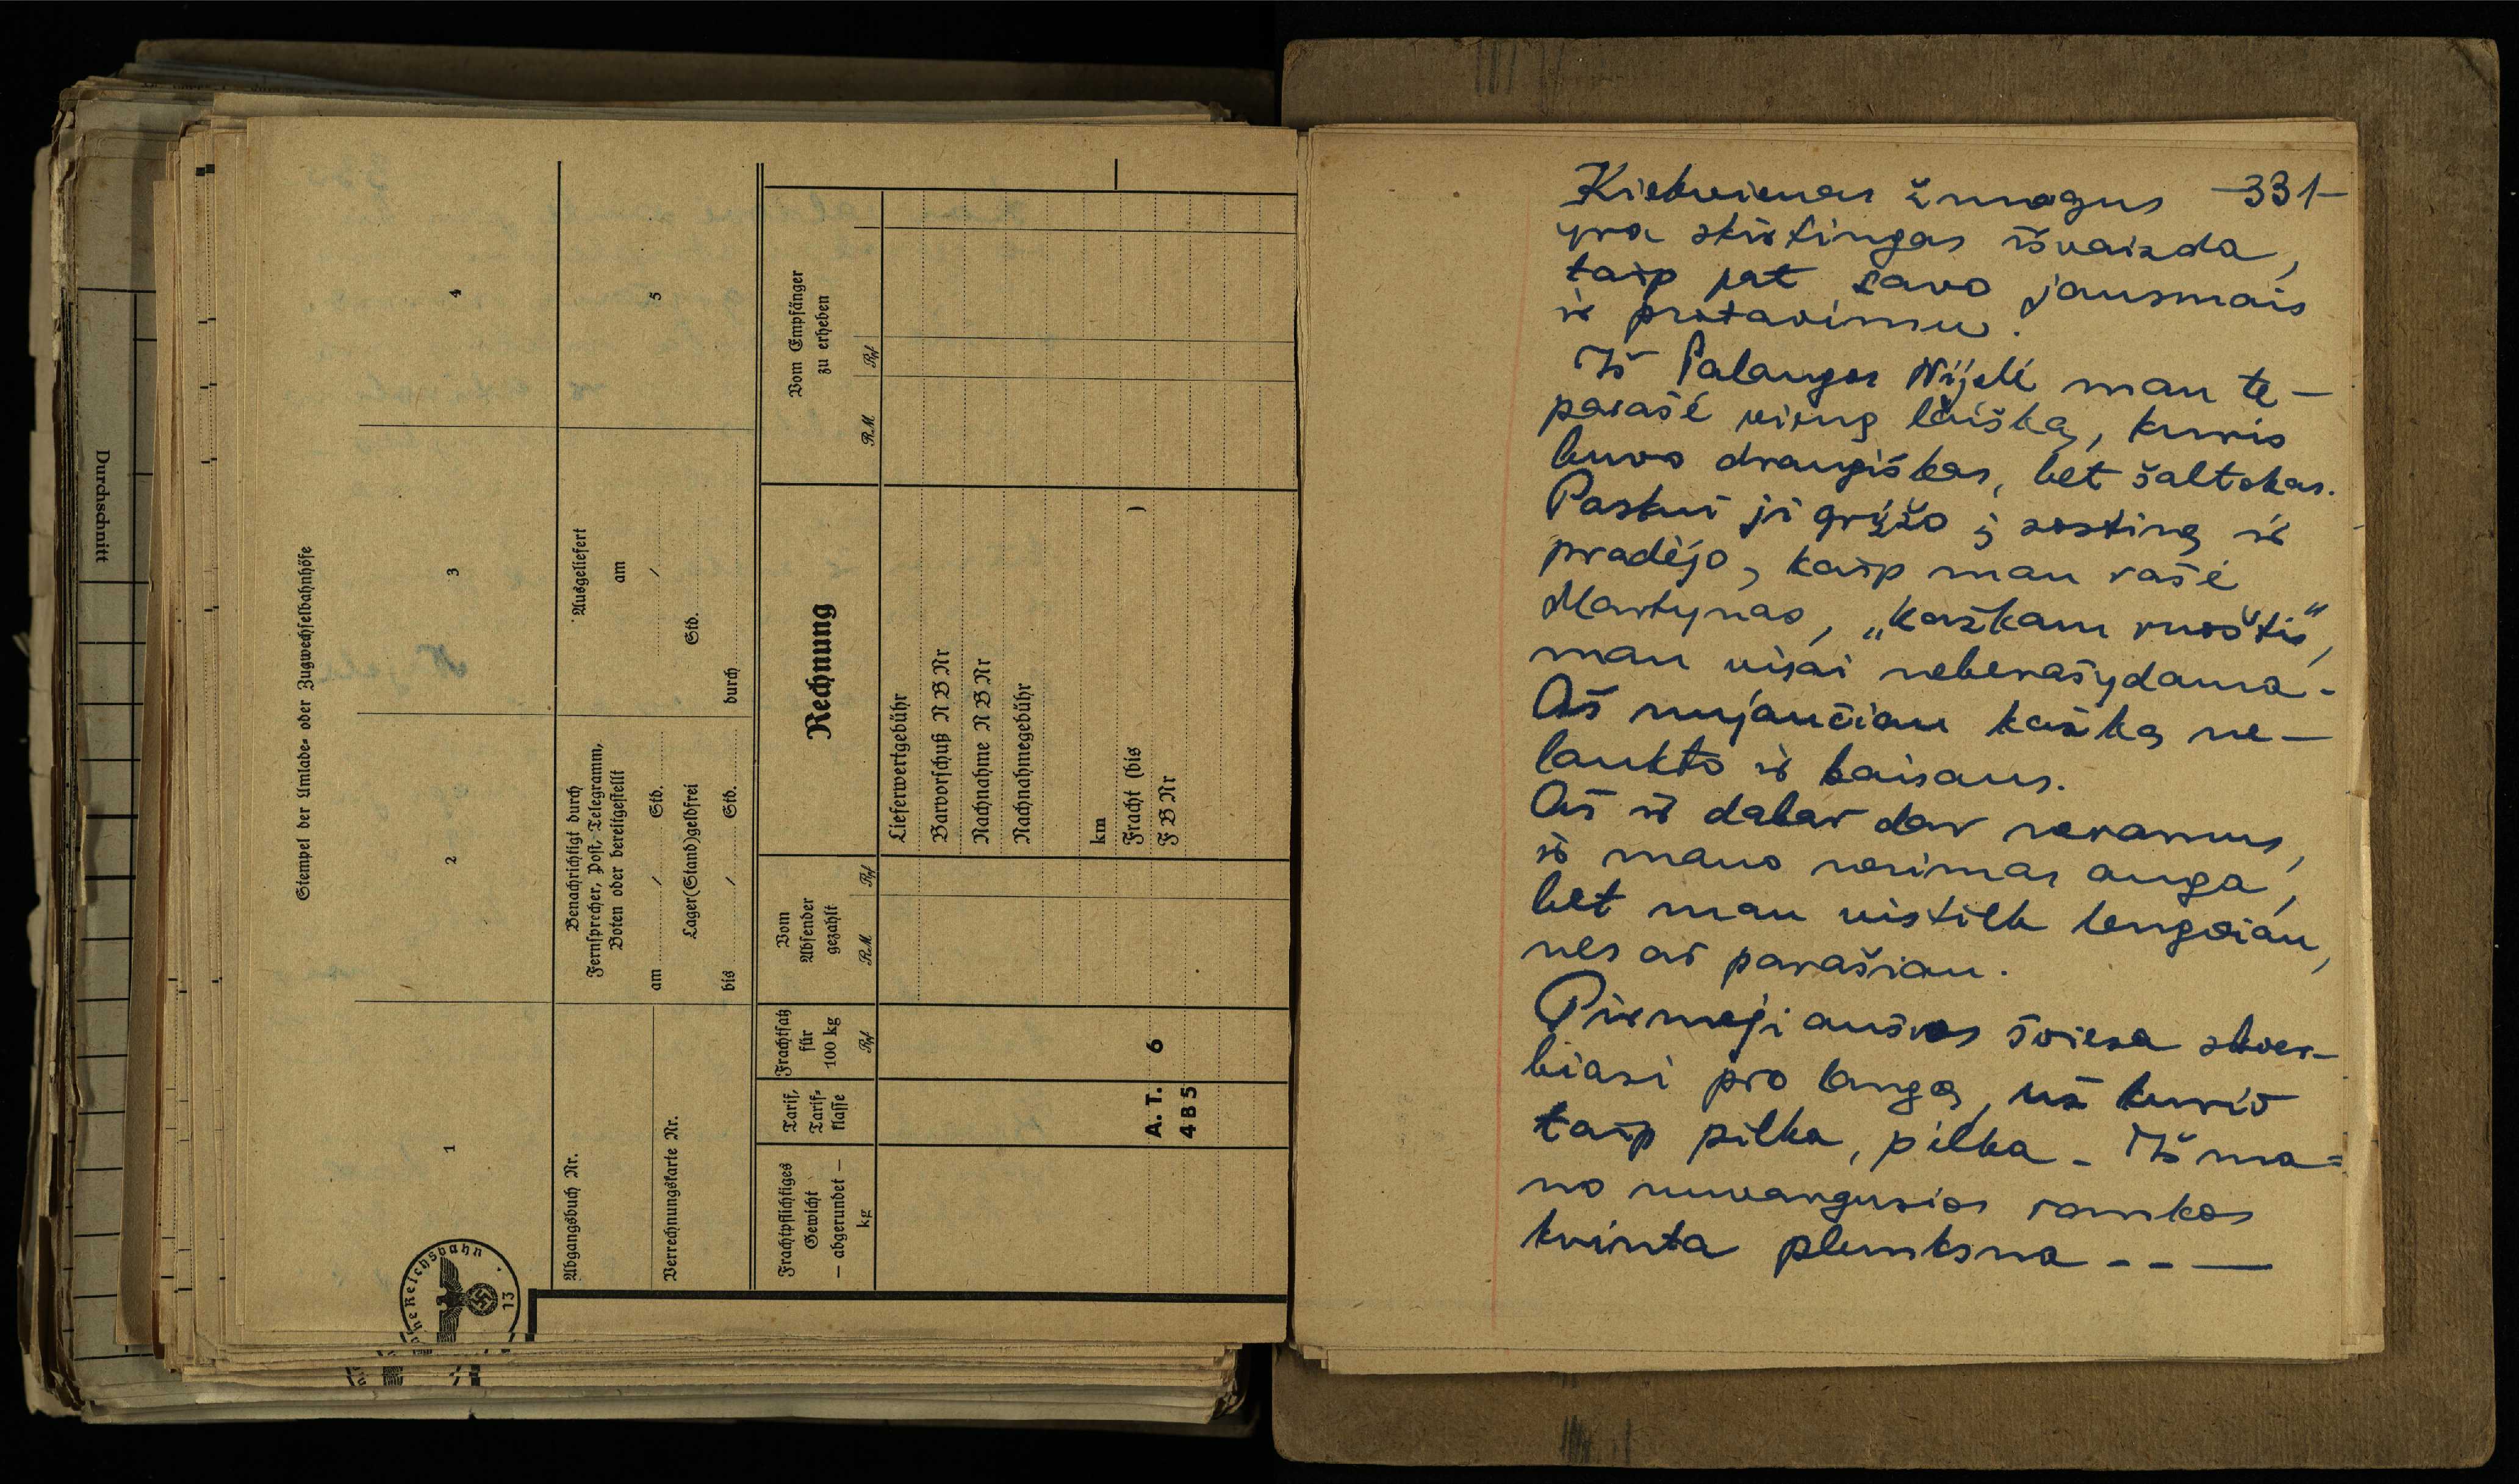 Durchschnitt
Stempel der Umlade- oder Zugwechselbahnhöfe
1
2
3
4
Abgangsbuch Nr.
Verrechnungskarte Nr.
Benachrichtigt durch
Fernsprecher, Post, Telegramm,
Boten oder bereitgestellt
am / Std.
Lager(Stand)geldfrei
bis / Std.
Ausgeliefert
am
/
Std.
durch
5
Frachtpflichtiges
Gewicht
— abgerundet —
kg
Tarif,
Tarif-
klasse
Frachtsatz
für
100 kg
Rpf
Vom
Absender
gezahlt
RM Rpf
Rechnung
Vom Empfänger
zu erheben
RM Rpf
Lieferwertgebühr
Barvorschuß N B Nr
Nachnahme N B Nr
Nachnahmegebühr
km
A. T. 6 Fracht (bis )
4 B 5 F B Nr
13
Kiekvienas žmogus -331-
yra skirtingas išvaizda,
taip pat savo jausmais
ir protavimu.
Iš Palangos Nijelė man te-
parašė vieną laišką, kuris
buvo draugiškas, bet šaltokas.
Paskui ji grįžo į sostinę ir
pradėjo, kaip man rašė
Martynas, „kažkam ruoštis",
man visai neberašydama.
Aš nujaučiau kažką ne-
laukto ir baisaus.
Aš ir dabar dar neramus,
ir mano nerimas auga,
bet man vistiek lengviau,
nes aš parašiau.
Pirmoji aušros šviesa skver-
biasi pro langą, už kurio
taip pilka, pilka. Iš ma-
no nuvargusios rankos
krinta plunksna - - —